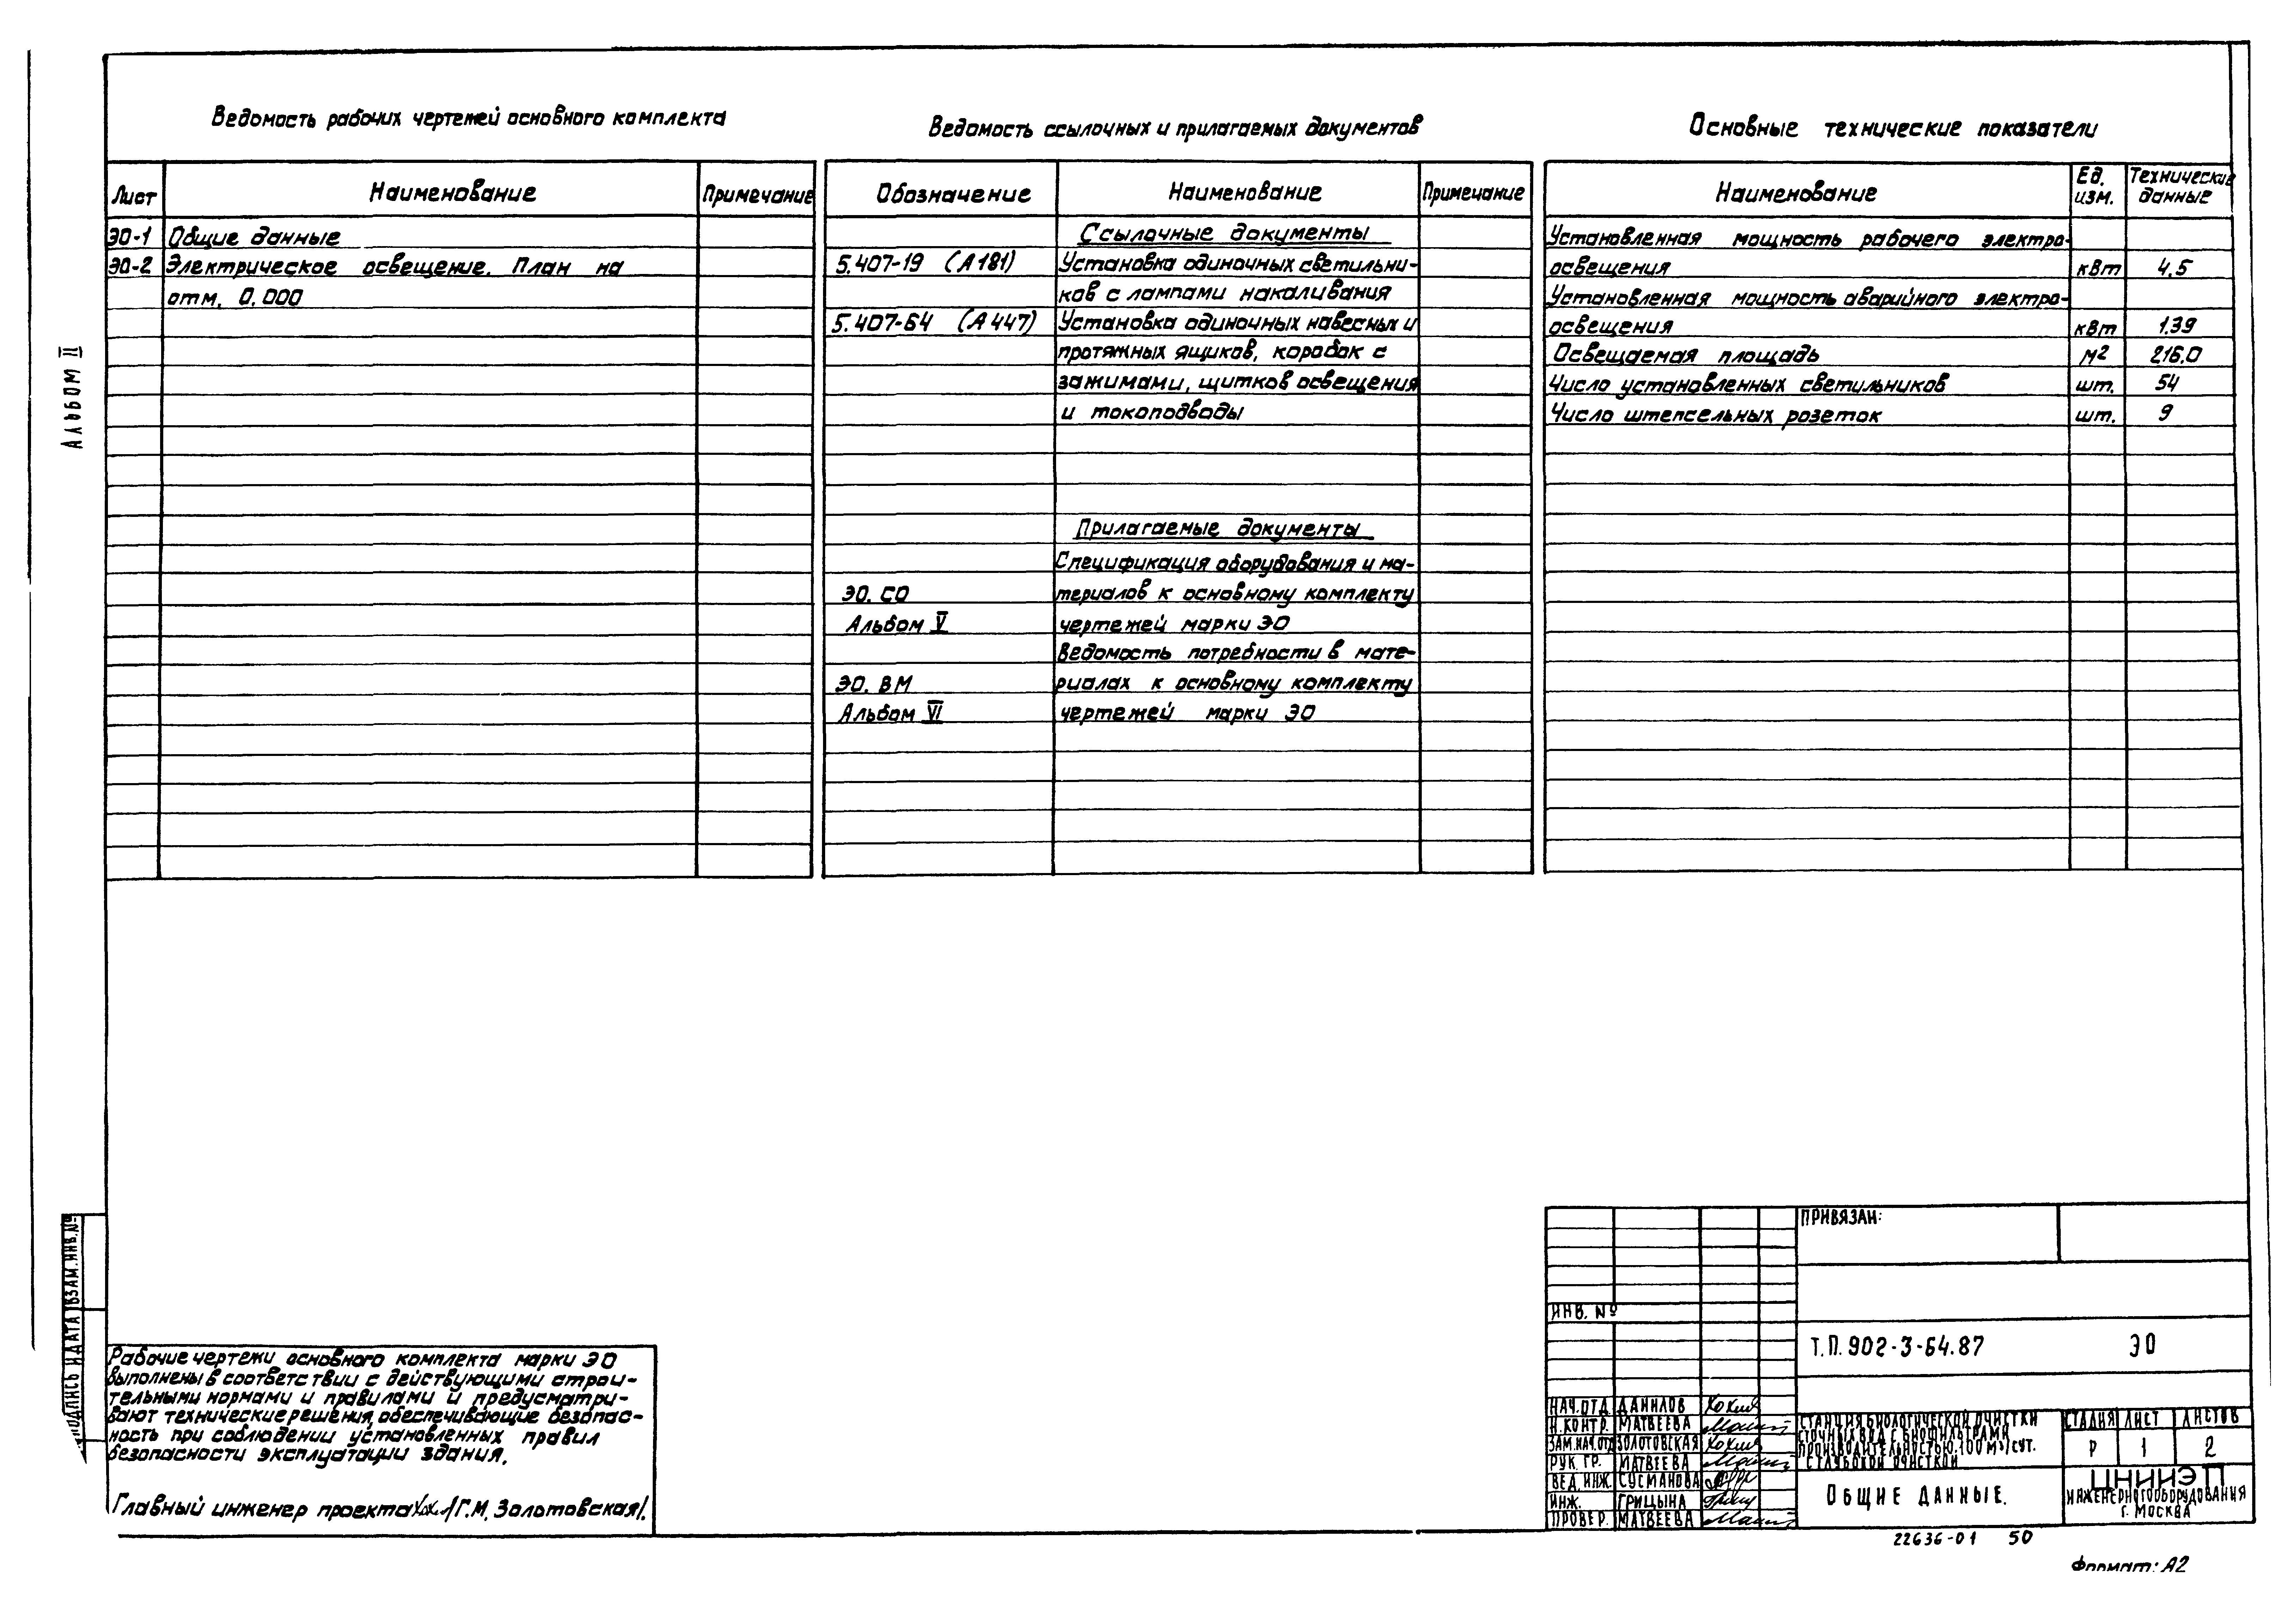 Альбом II
Ведомость рабочих чертежей основного комплекта
Лист Наименование Примечание
ЭО-1 Общие данные
ЭО-2 Электрическое освещение. План на
отм. 0.000
Ведомость ссылочных и прилагаемых документов
Обозначение Наименование Примечание
Ссылочные документы
5.407-19 (А181) Установка одиночных светильни-
ков с лампами накаливания
5.407-64 (А447) Установка одиночных навесных и
протяжных ящиков, коробок с
зажимами, щитков освещения
и токоподводы
Прилагаемые документы
Спецификация оборудования и ма-
ЭО. СО териалов к основному комплекту
Альбом V чертежей марки ЭО
Ведомость потребности в мате-
ЭО. ВМ риалах к основному комплекту
Альбом VI чертежей марки ЭО
Основные технические показатели
Наименование Ед. изм. Технические данные
Установленная мощность рабочего электро-
освещения квт 4.5
Установленная мощность аварийного электро-
освещения квт 1.39
Освещаемая площадь м² 216.0
Число установленных светильников шт. 54
Число штепсельных розеток шт. 9
ПОДПИСЬ И ДАТА ВЗАМ.ИНВ.№
Рабочие чертежи основного комплекта марки ЭО
выполнены в соответствии с действующими строи-
тельными нормами и правилами и предусматри-
вают технические решения, обеспечивающие безопас-
ность при соблюдении установленных правил
безопасности эксплуатации здания.
Главный инженер проекта /Г.М. Золотовская/.
ПРИВЯЗАН:
ИНВ. №
Т.П. 902-3-64.87 ЭО
НАЧ.ОТД ДАНИЛОВ
Н.КОНТР. МАТВЕЕВА
ЗАМ.НАЧ.ОТД ЗОЛОТОВСКАЯ
РУК. ГР. МАТВЕЕВА
ВЕД. ИНЖ. СУСМАНОВА
ИНЖ. ГРИЦЫНА
ПРОВЕР. МАТВЕЕВА
СТАНЦИЯ БИОЛОГИЧЕСКОЙ ОЧИСТКИ
СТОЧНЫХ ВОД С БИОФИЛЬТРАМИ
ПРОИЗВОДИТЕЛЬНОСТЬЮ 100 М³/СУТ.
С ГЛУБОКОЙ ОЧИСТКОЙ
СТАДИЯ ЛИСТ ЛИСТОВ
Р 1 2
ОБЩИЕ ДАННЫЕ.
ЦНИИЭП
ИНЖЕНЕРНОГО ОБОРУДОВАНИЯ
Г. МОСКВА
22636-01 50
Формат: А2